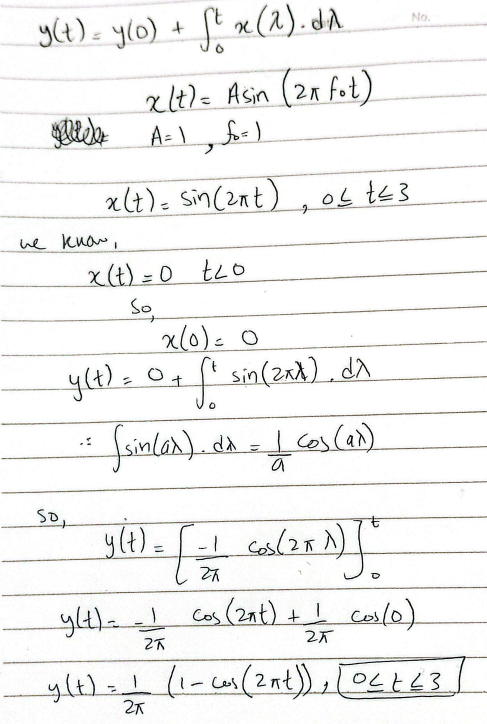 No.
y(t) = y(0) + ∫₀ᵗ x(λ).dλ
x(t) = A sin (2π f₀t)
A=1 , f₀=1
x(t) = sin(2πt) , 0≤ t≤3
we know,
x(t) = 0 t<0
So,
x(0) = 0
y(t) = 0 + ∫₀ᵗ sin(2πλ) . dλ
∵ ∫sin(aλ). dλ = 1/a cos(aλ)
so,
y(t) = [-1/2π cos(2πλ)]₀ᵗ
y(t) = -1/2π cos(2πt) + 1/2π cos(0)
y(t) = 1/2π (1-cos(2πt)), 0≤t≤3